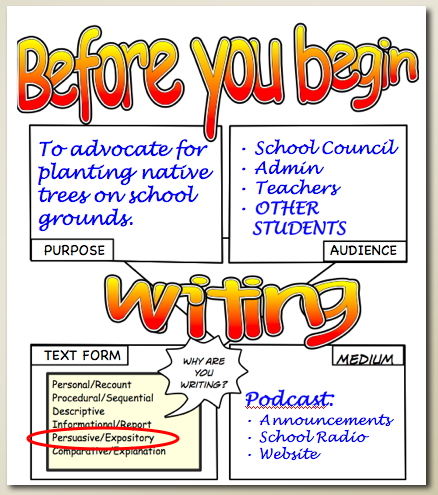 Before you begin
To advocate for
planting native
trees on school
grounds.
PURPOSE
• School Council
• Admin
• Teachers
• OTHER
STUDENTS
AUDIENCE
writing
TEXT FORM
Personal/Recount
Procedural/Sequential
Descriptive
Informational/Report
Persuasive/Expository
Comparative/Explanation
WHY ARE
YOU
WRITING?
MEDIUM
Podcast:
• Announcements
• School Radio
• Website